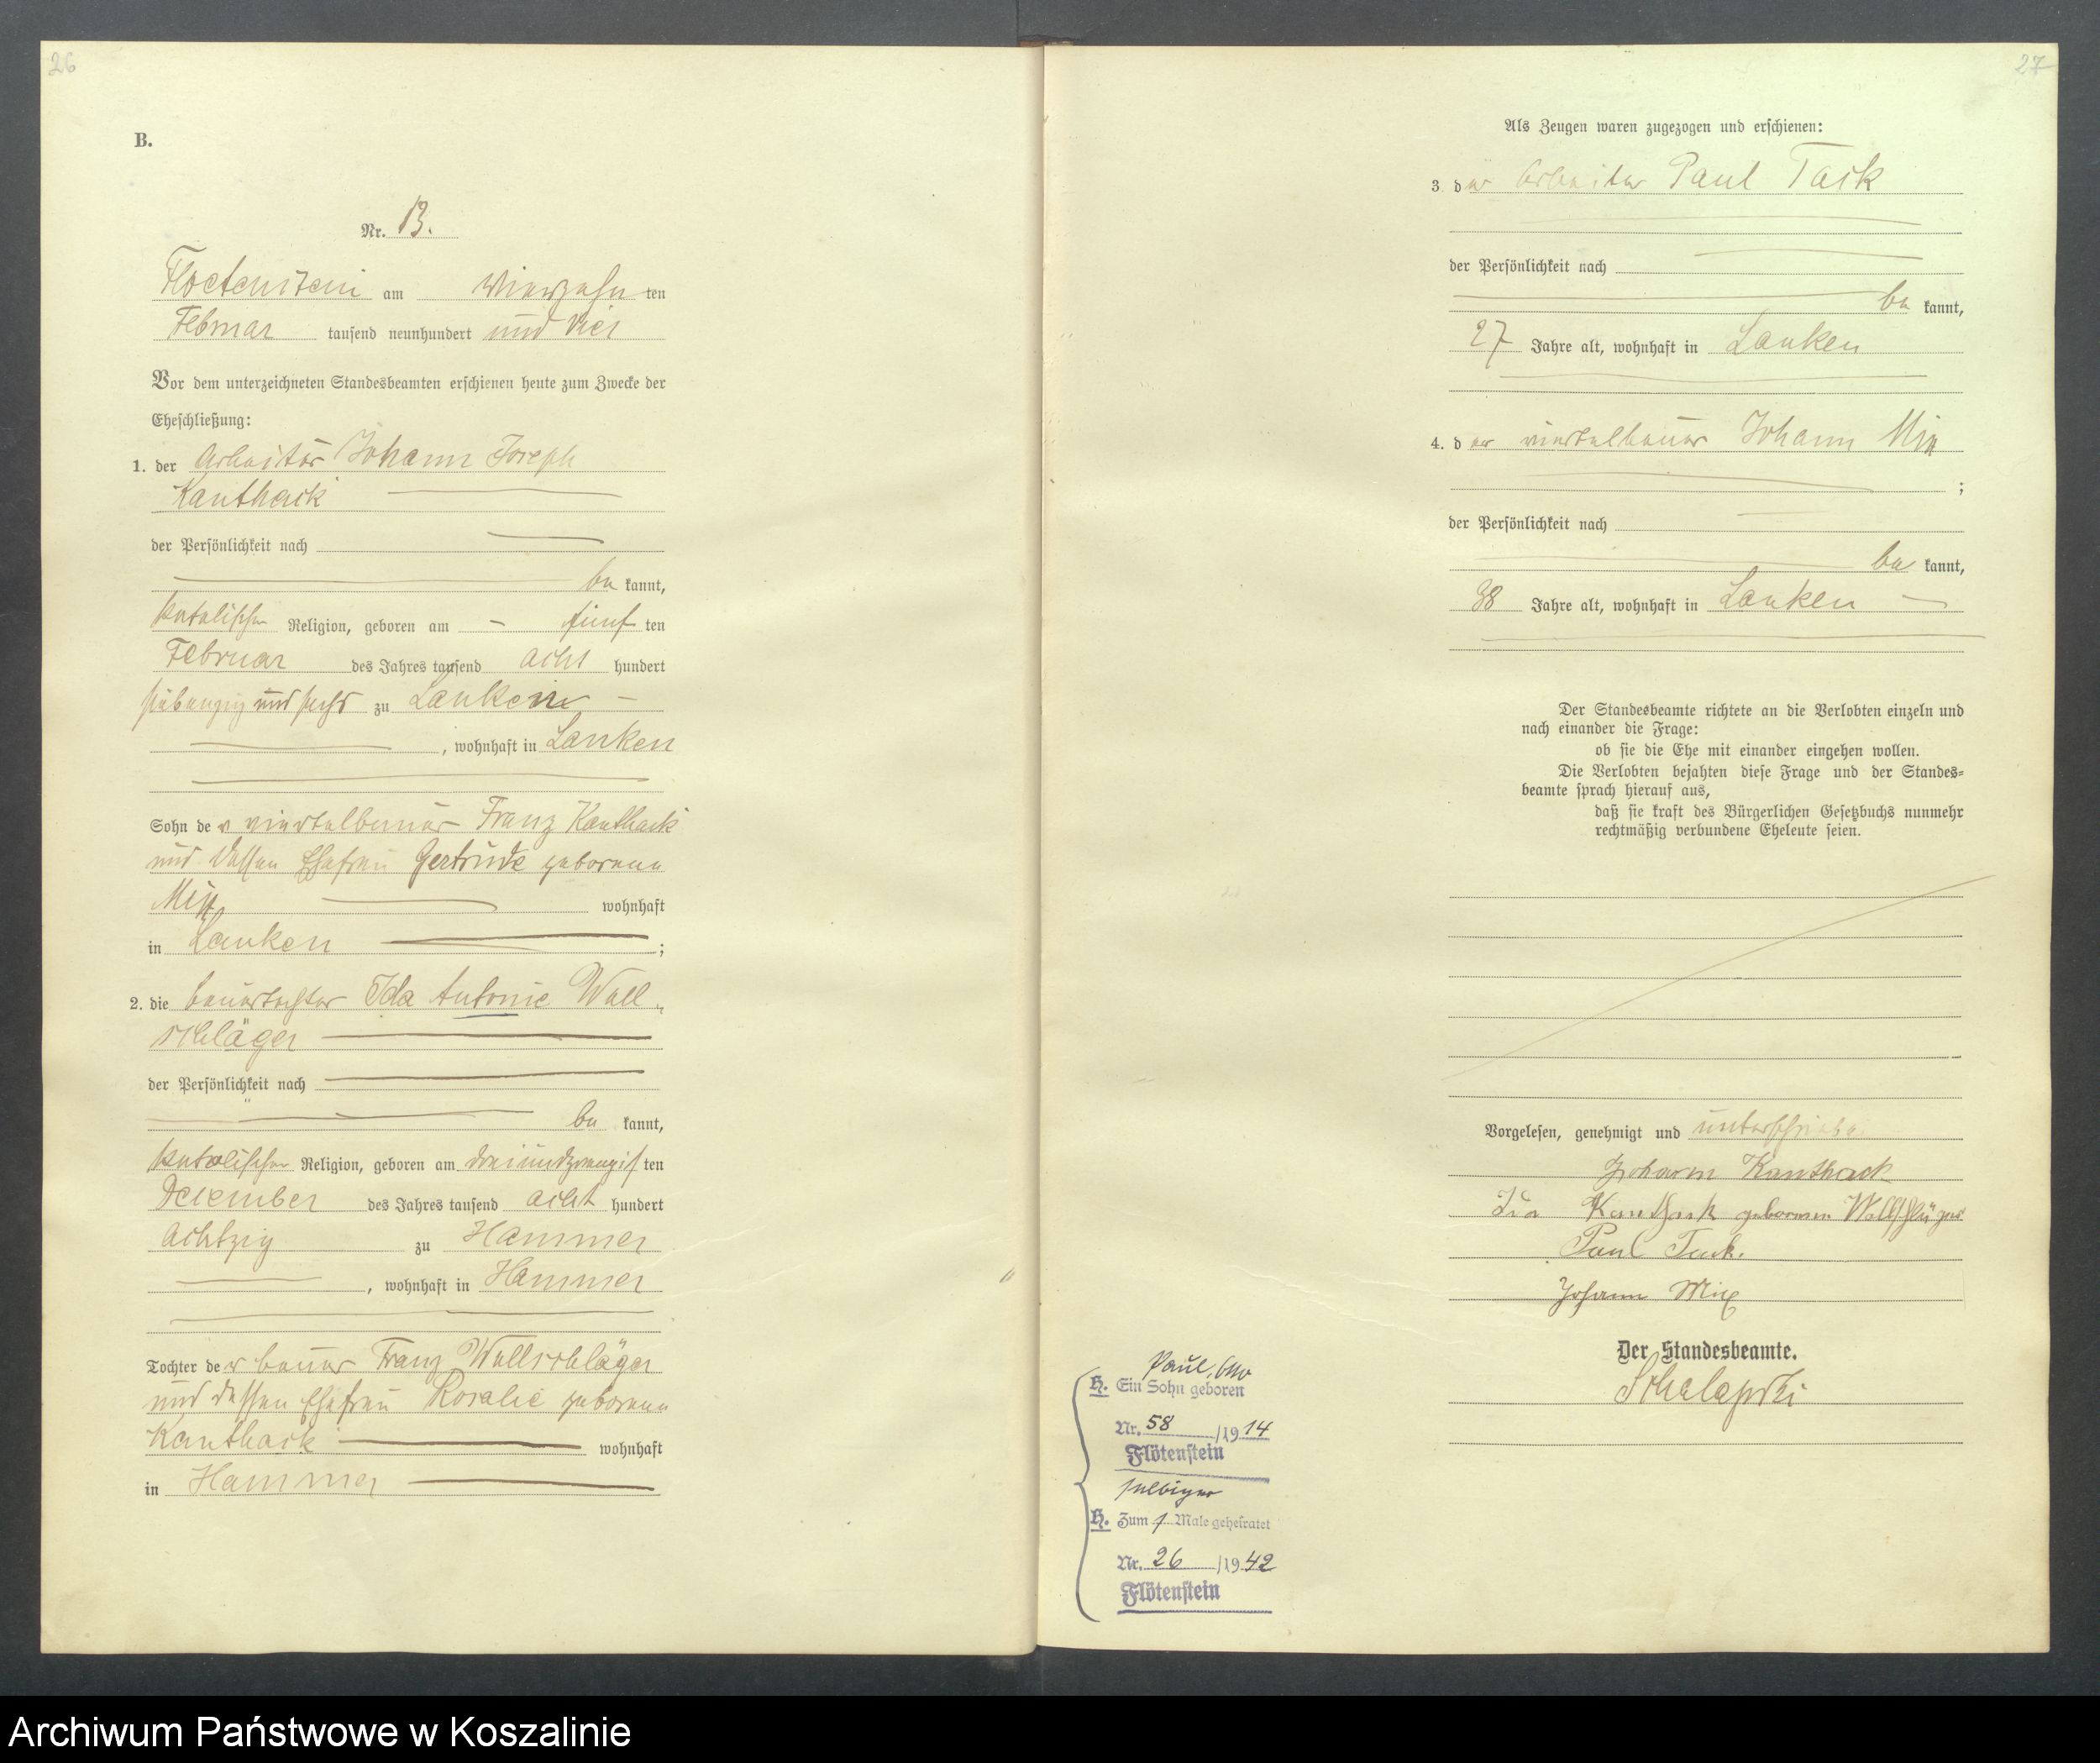 26
B.
Nr. 13.
Floetenstein am vierzehn ten
Februar tausend neunhundert und vier
Vor dem unterzeichneten Standesbeamten erschienen heute zum Zwecke der
Eheschließung:
1. der Arbeiter Johann Joseph
Kanthack
der Persönlichkeit nach
be kannt,
katolischer Religion, geboren am fünf ten
Februar des Jahres tausend acht hundert
siebenzig und sechs zu Lanken
, wohnhaft in Lanken
Sohn de r viertelbauer Franz Kanthack
und dessen Ehefrau Gertrude geborene
Mix wohnhaft
in Lanken ;
2. die bauertochter Ida Antonie Woll-
schläger
der Persönlichkeit nach
be kannt,
katolischer Religion, geboren am dreiundzwanzigs ten
Dezember des Jahres tausend acht hundert
achtzig zu Hammer
, wohnhaft in Hammer
Tochter de r bauer Franz Wollschläger
und dessen Ehefrau Rosalie geborene
Kanthack wohnhaft
in Hammer
27
Als Zeugen waren zugezogen und erschienen:
3. d er Arbeiter Paul Tack
der Persönlichkeit nach
be kannt,
27 Jahre alt, wohnhaft in Lanken
4. d er viertelbauer Johann Mix
;
der Persönlichkeit nach
be kannt,
38 Jahre alt, wohnhaft in Lanken
Der Standesbeamte richtete an die Verlobten einzeln und
nach einander die Frage:
ob sie die Ehe mit einander eingehen wollen.
Die Verlobten bejahten diese Frage und der Standes=
beamte sprach hierauf aus,
daß sie kraft des Bürgerlichen Gesetzbuchs nunmehr
rechtmäßig verbundene Eheleute seien.
Vorgelesen, genehmigt und unterschrieben
Johann Kanthack
Ida Kanthack geborenen Wollschläger
Paul Tack.
Johann Mix
Der Standesbeamte.
Paul, Otto
H. Ein Sohn geboren
Nr. 58 /1914
Flötenstein
selbiger
H. Zum 1 Male geheiratet
Nr. 26 /1942
Flötenstein
Archiwum Państwowe w Koszalinie